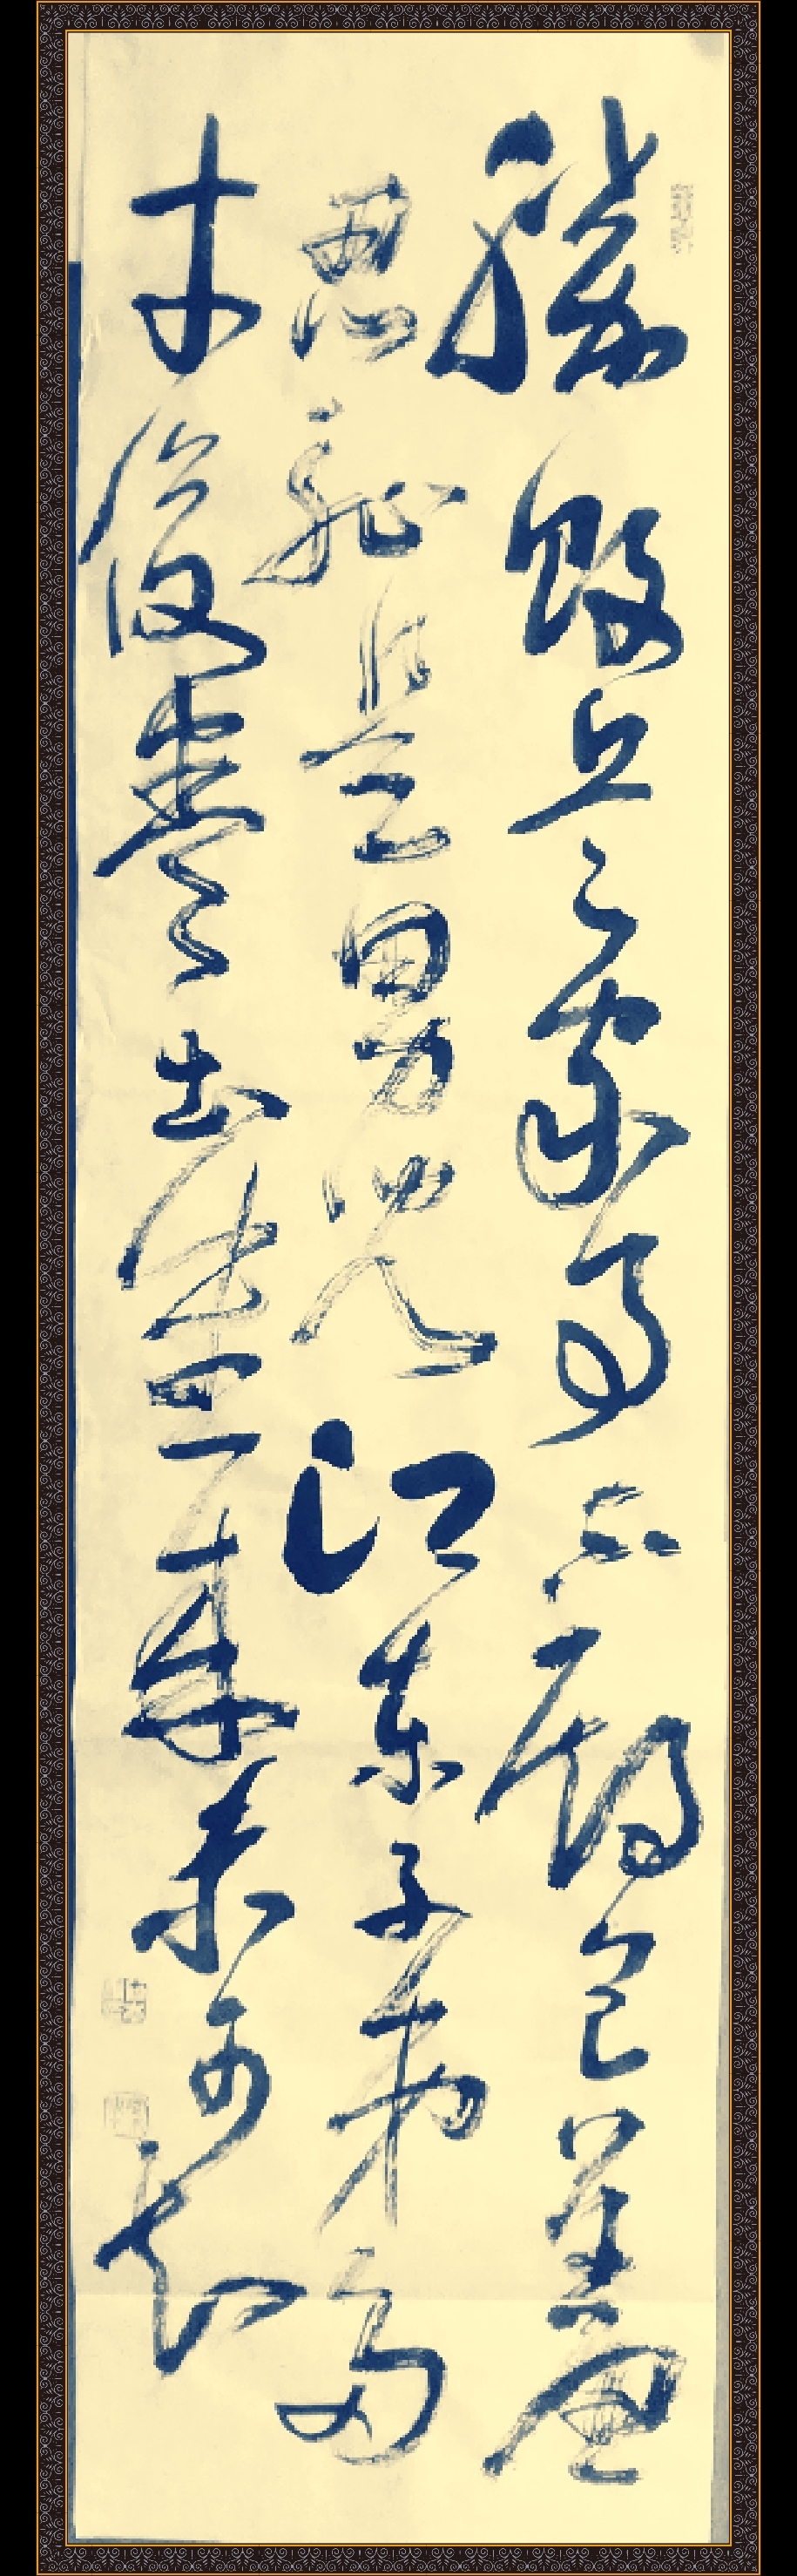 勝敗兵家事不期包羞
忍恥是男兒江東子弟多
才俊卷土重来未可知